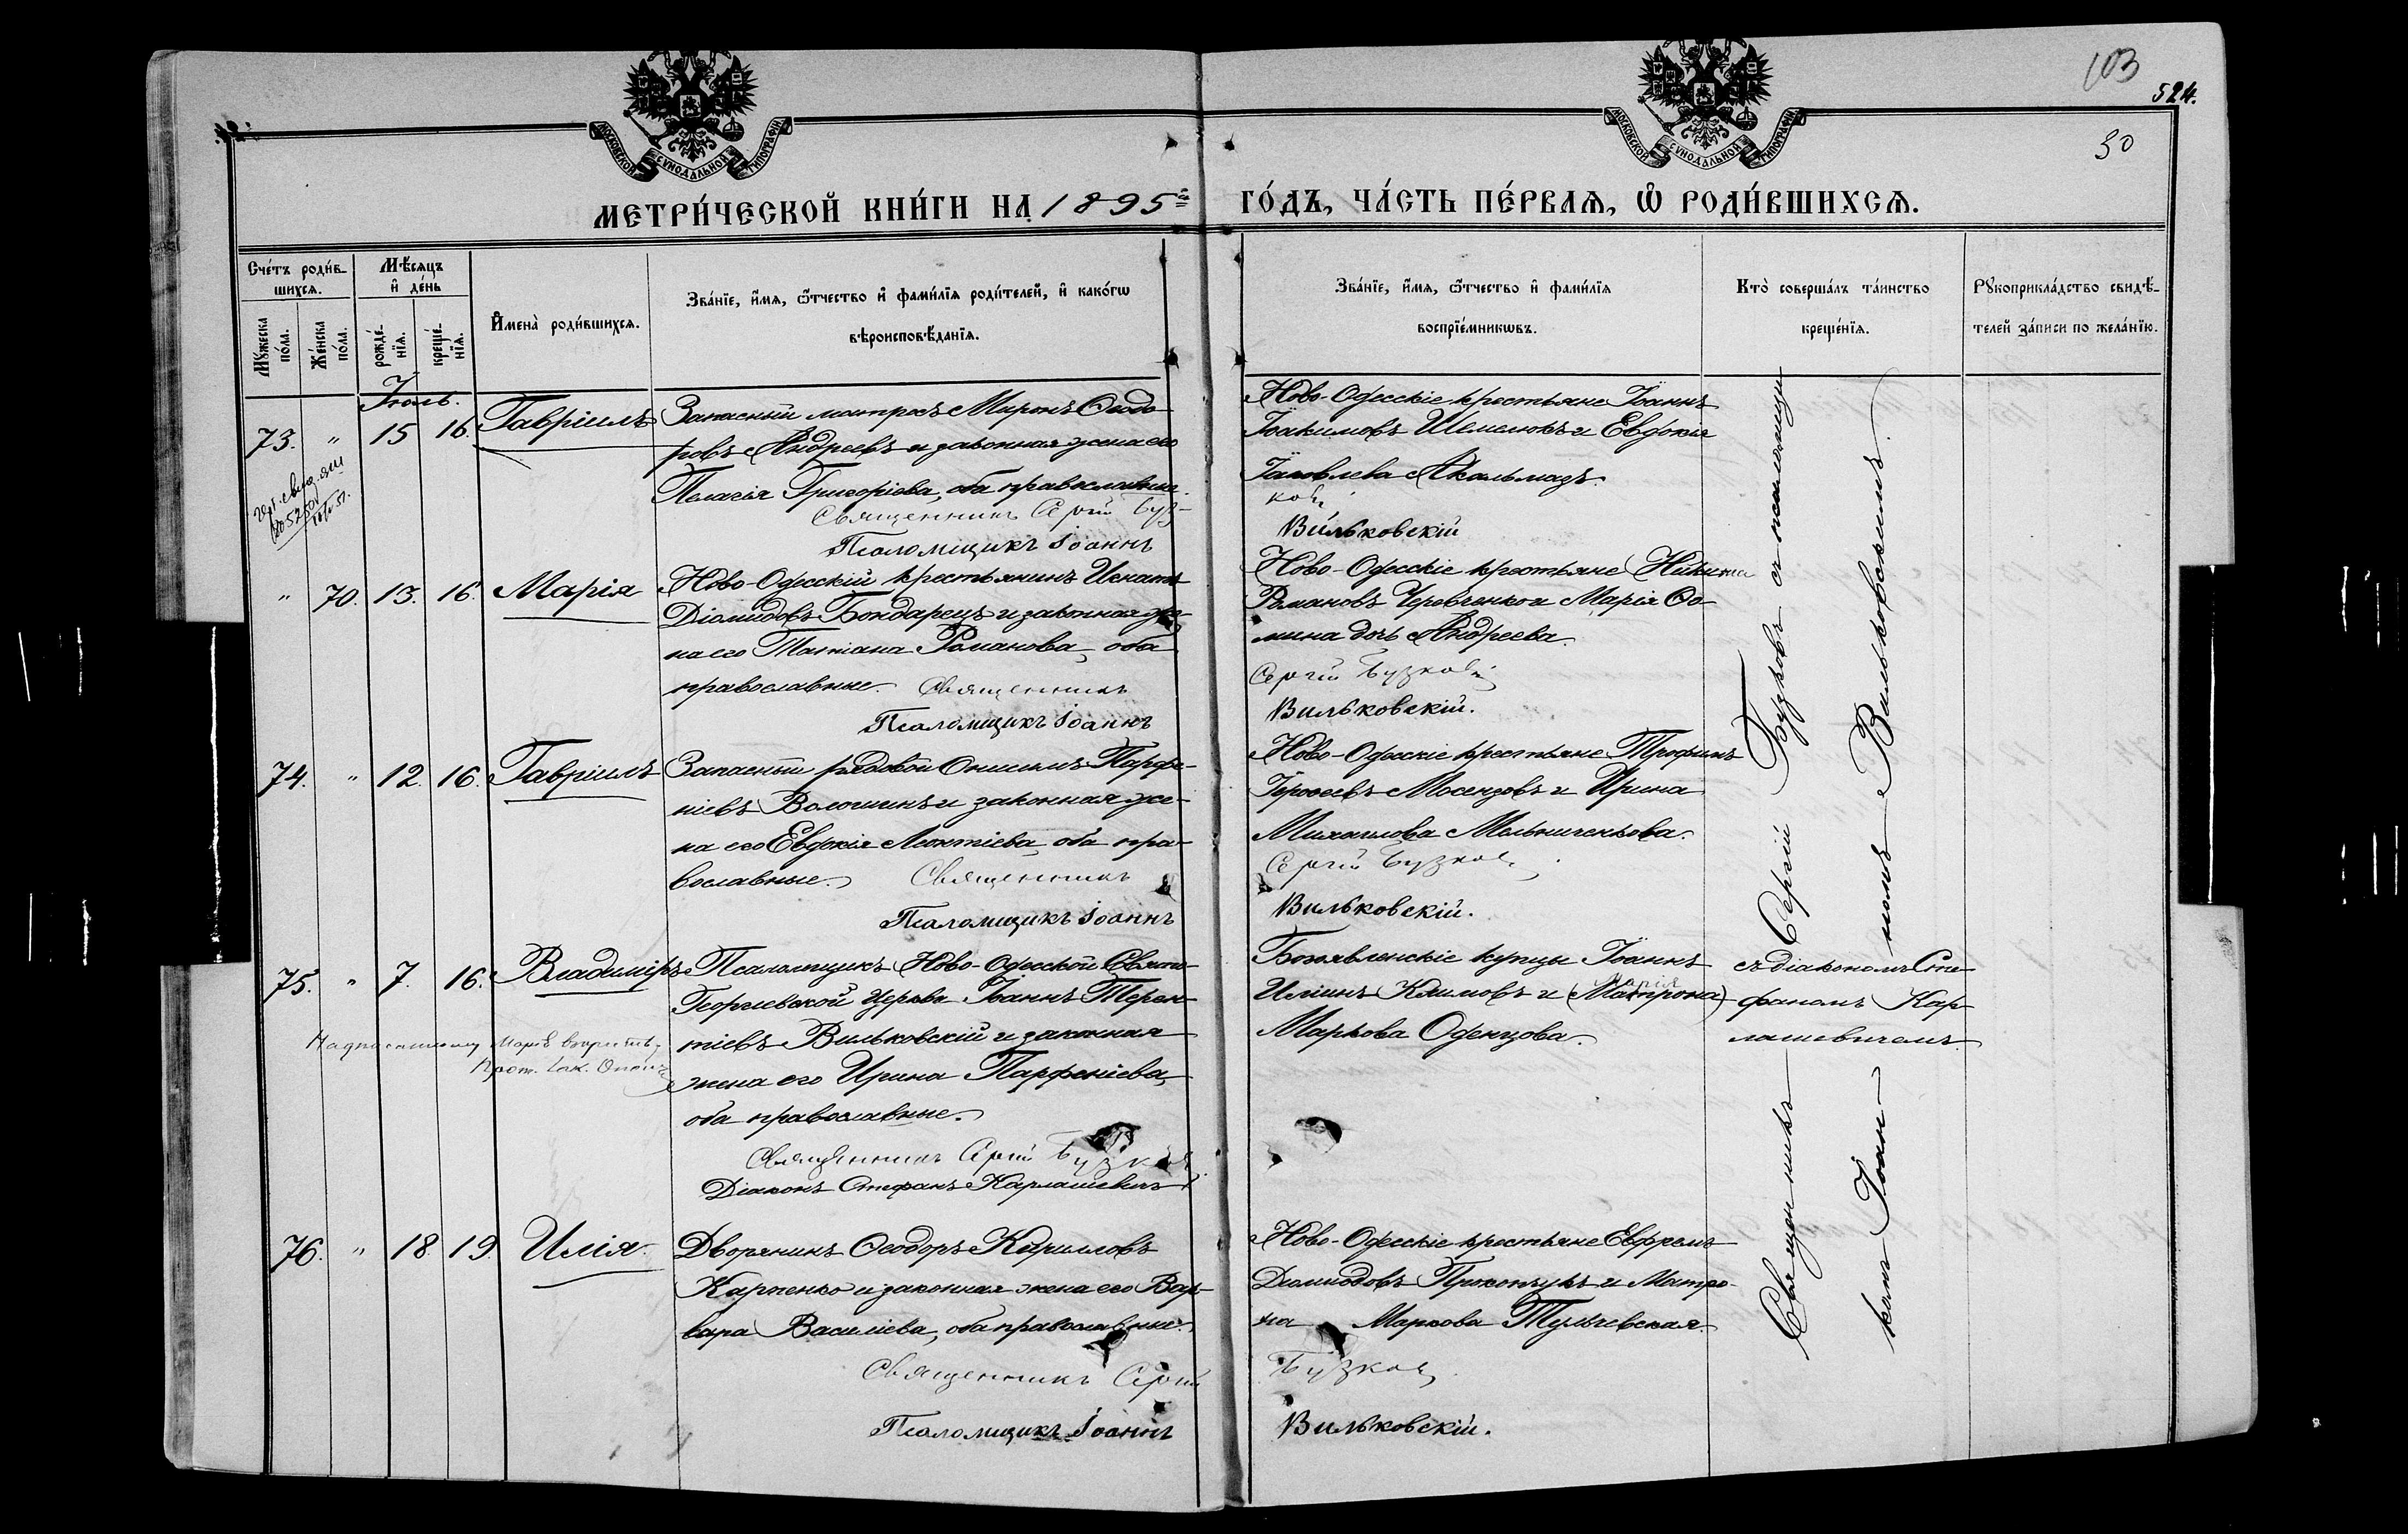 103
524.
30
МОСКОВСКОЙ СУНОДАЛЬНОЙ ТИПОГРАФІИ
МОСКОВСКОЙ СУНОДАЛЬНОЙ ТИПОГРАФІИ
МЕТРИ́ЧЕСКОЙ КНИ́ГИ НА 1895й ГО́ДЪ, ЧА́СТЬ ПЕ́РВАѦ, Ѡ РОДИ́ВШИХСѦ.
Сче́тъ роди́в-
шихсѧ.
Мꙋ́жеска по́ла.
Же́нска по́ла.
Мѣ́сѧцъ
и҆ де́нь
рожде́-
нїѧ.
креще́-
нїѧ.
И҆мена̀ роди́вшихсѧ.
Зва́нїе, и҆́мѧ, ѻ҆́тчество и҆ фами́лїѧ роди́телей, и҆ како́гѡ
вѣроисповѣ́данїѧ.
Зва́нїе, и҆́мѧ, ѻ҆́тчество и҆ фами́лїѧ
воспрїе́мникѡвъ.
Кто̀ соверша́лъ та́инство
креще́нїѧ.
Рꙋкоприкла́дство свидѣ́-
телей за́писи по жела́нїю.
Іюль.
73. " 15 16. Гавріилъ
Запасный матросъ Миронъ Ѳеодо-
ровъ Андреевъ и законная жена его
Пелагія Григоріева, оба православные.
Священникъ Сергій Буз-
Псаломщикъ Іоаннъ
Ново-Одесскіе крестьяне Іоаннъ
Іоакимовъ Шемелюкъ и Евдокія
Іаковлева Акальмазъ.
ковъ
Вильковскій
" 70. 13. 16. Марія
Ново-Одесскій крестьянинъ Игнатій
Діомидовъ Бондарецъ и законная же-
на его Татіана Романова, оба
православные. Священникъ
Псаломщикъ Іоаннъ
Ново-Одесскіе крестьяне Никита
Романовъ Черевченко и Марія Ѳо-
мина дочь Андреева.
Сергій Бузковъ
Вильковскій.
74. " 12. 16. Гавріилъ
Запасный рядовой Онисимъ Парфе-
ніевъ Волошинъ и законная же-
на его Евдокія Леонтіева, оба пра-
вославные. Священникъ
Псаломщикъ Іоаннъ
Ново-Одесскіе крестьяне Трофимъ
Іероѳеевъ Мосенцовъ и Ирина
Михаилова Мельниченкова.
Сергій Бузковъ
Вильковскій.
75. " 7. 16. Владиміръ
Надписанному Марія
Псаломщикъ Ново-Одесской Свято-
Георгіевской церкви Іоаннъ Терен-
тіевъ Вильковскій и законная
жена его Ирина Парфеніева,
оба православные.
Священникъ Сергій Бузковъ
Діаконъ Стефанъ Карлашевичъ
Богоявленскіе купцы Іоаннъ
Марія
Иліинъ Климовъ и (Матрона)
Маркова Оденцова.
съ діакономъ Сте-
фаномъ Кар-
лашевичемъ.
76. " 18. 19. Илія.
Дворянинъ Ѳеодоръ Кирилловъ
Карпенко и законная жена его Вар-
вара Василіева, оба православные.
Священникъ Сергій
Псаломщикъ Іоаннъ
Ново-Одесскіе крестьяне Евфремъ
Діомидовъ Прокопчукъ и Матро-
на Маркова Тульчевская.
Бузковъ
Вильковскій.
Священникъ Сергій Бузковъ съ псаломщи-
комъ Іоан-номъ Вильковскимъ.